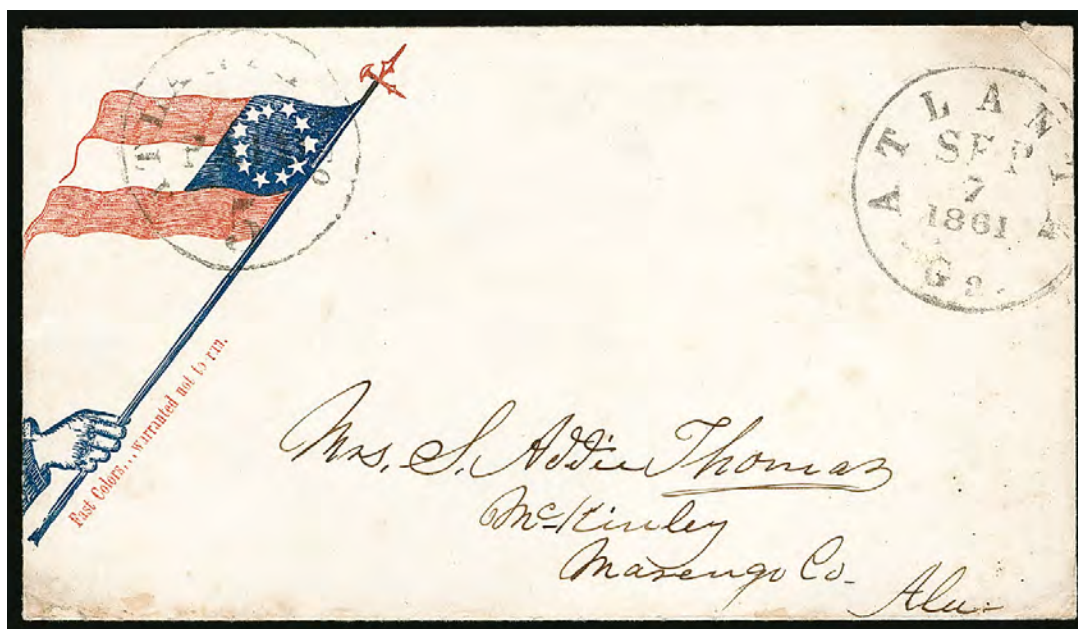 ATLANTA
SEP
7
1861
Ga.
Fast Colors... Warranted not to run.
Mrs. S. Addie Thomas
McKinley
Marengo Co.
Ala.